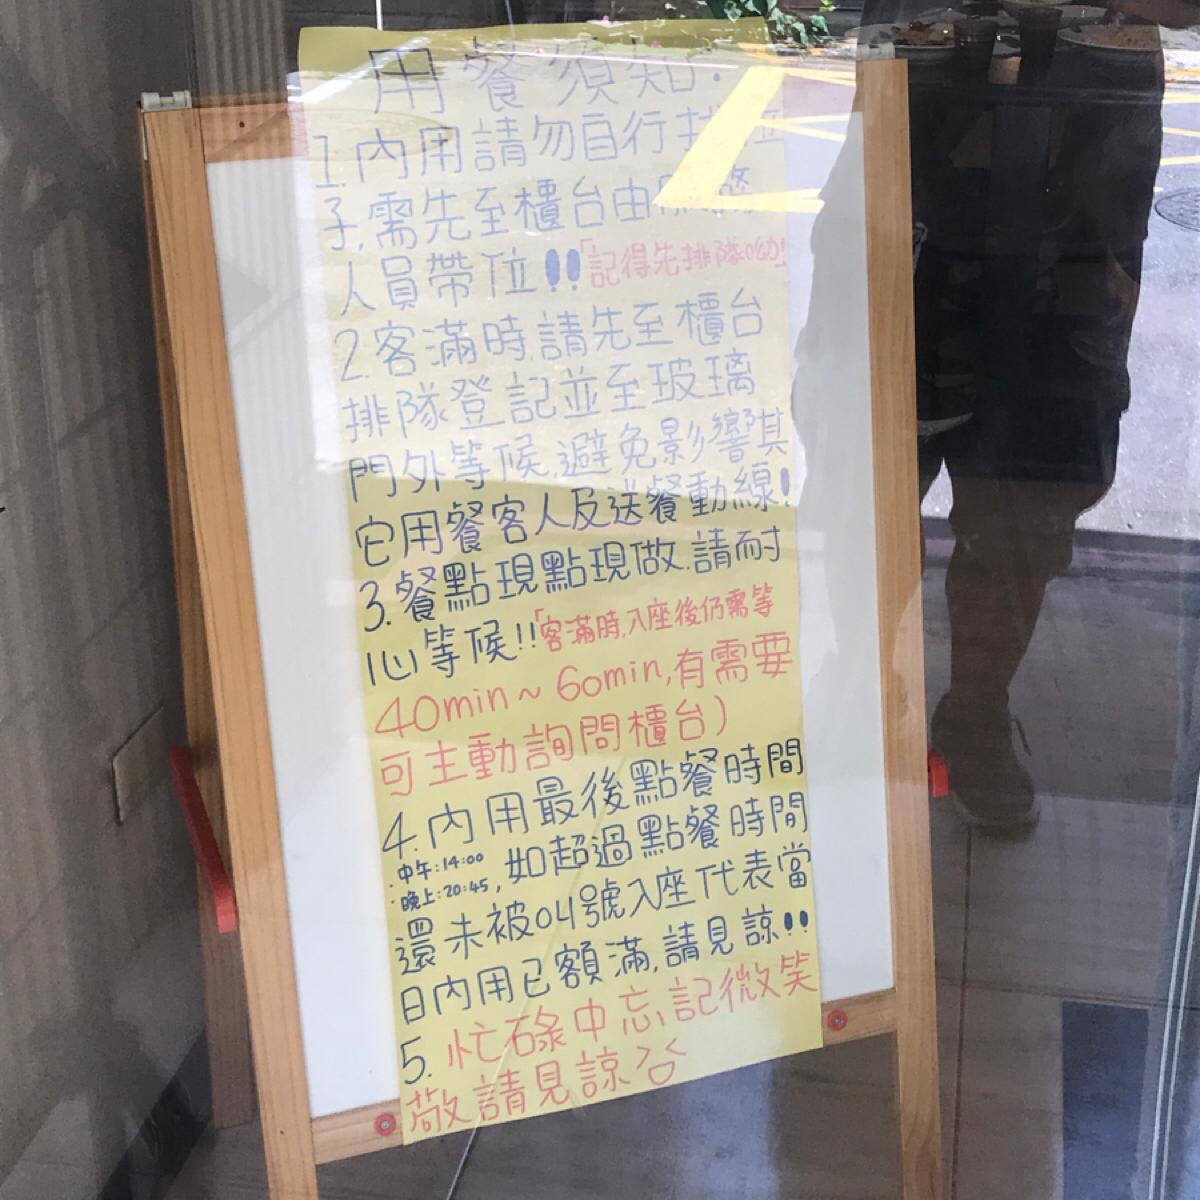 用餐須知:
1.內用請勿自行找位
子,需先至櫃台由服務
人員帶位!!「記得先排隊呦!
2.客滿時,請先至櫃台
排隊登記並至玻璃
門外等候,避免影響其
它用餐客人及送餐動線!
3.餐點現點現做,請耐
心等候!!「客滿時,入座後仍需等
40min~60min,有需要
可主動詢問櫃台)
4.內用最後點餐時間
·中午:14:00
·晚上:20:45,如超過點餐時間
還未被叫號入座代表當
日內用已額滿,請見諒!!
5.忙碌中忘記微笑
敬請見諒